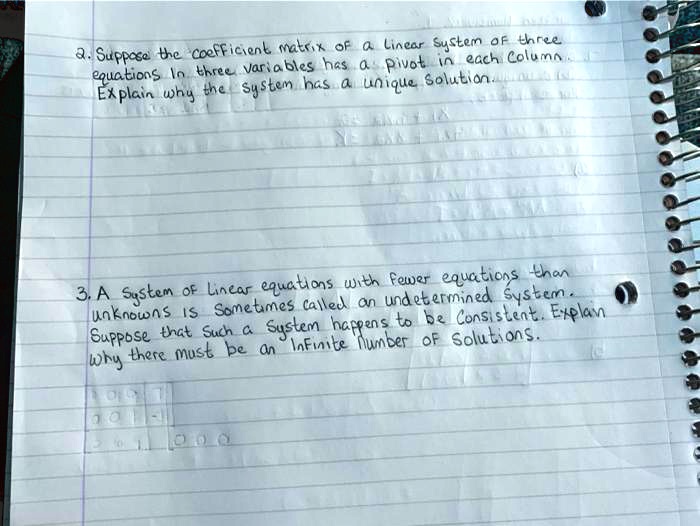 2. Suppose the coefficient matrix of a linear system of three
equations in three variables has a pivot in each column.
Explain why the system has a unique solution.
3. A system of linear equations with fewer equations than
unknowns is sometimes called an undetermined system.
Suppose that such a system happens to be consistent. Explain
why there must be an infinite number of solutions.